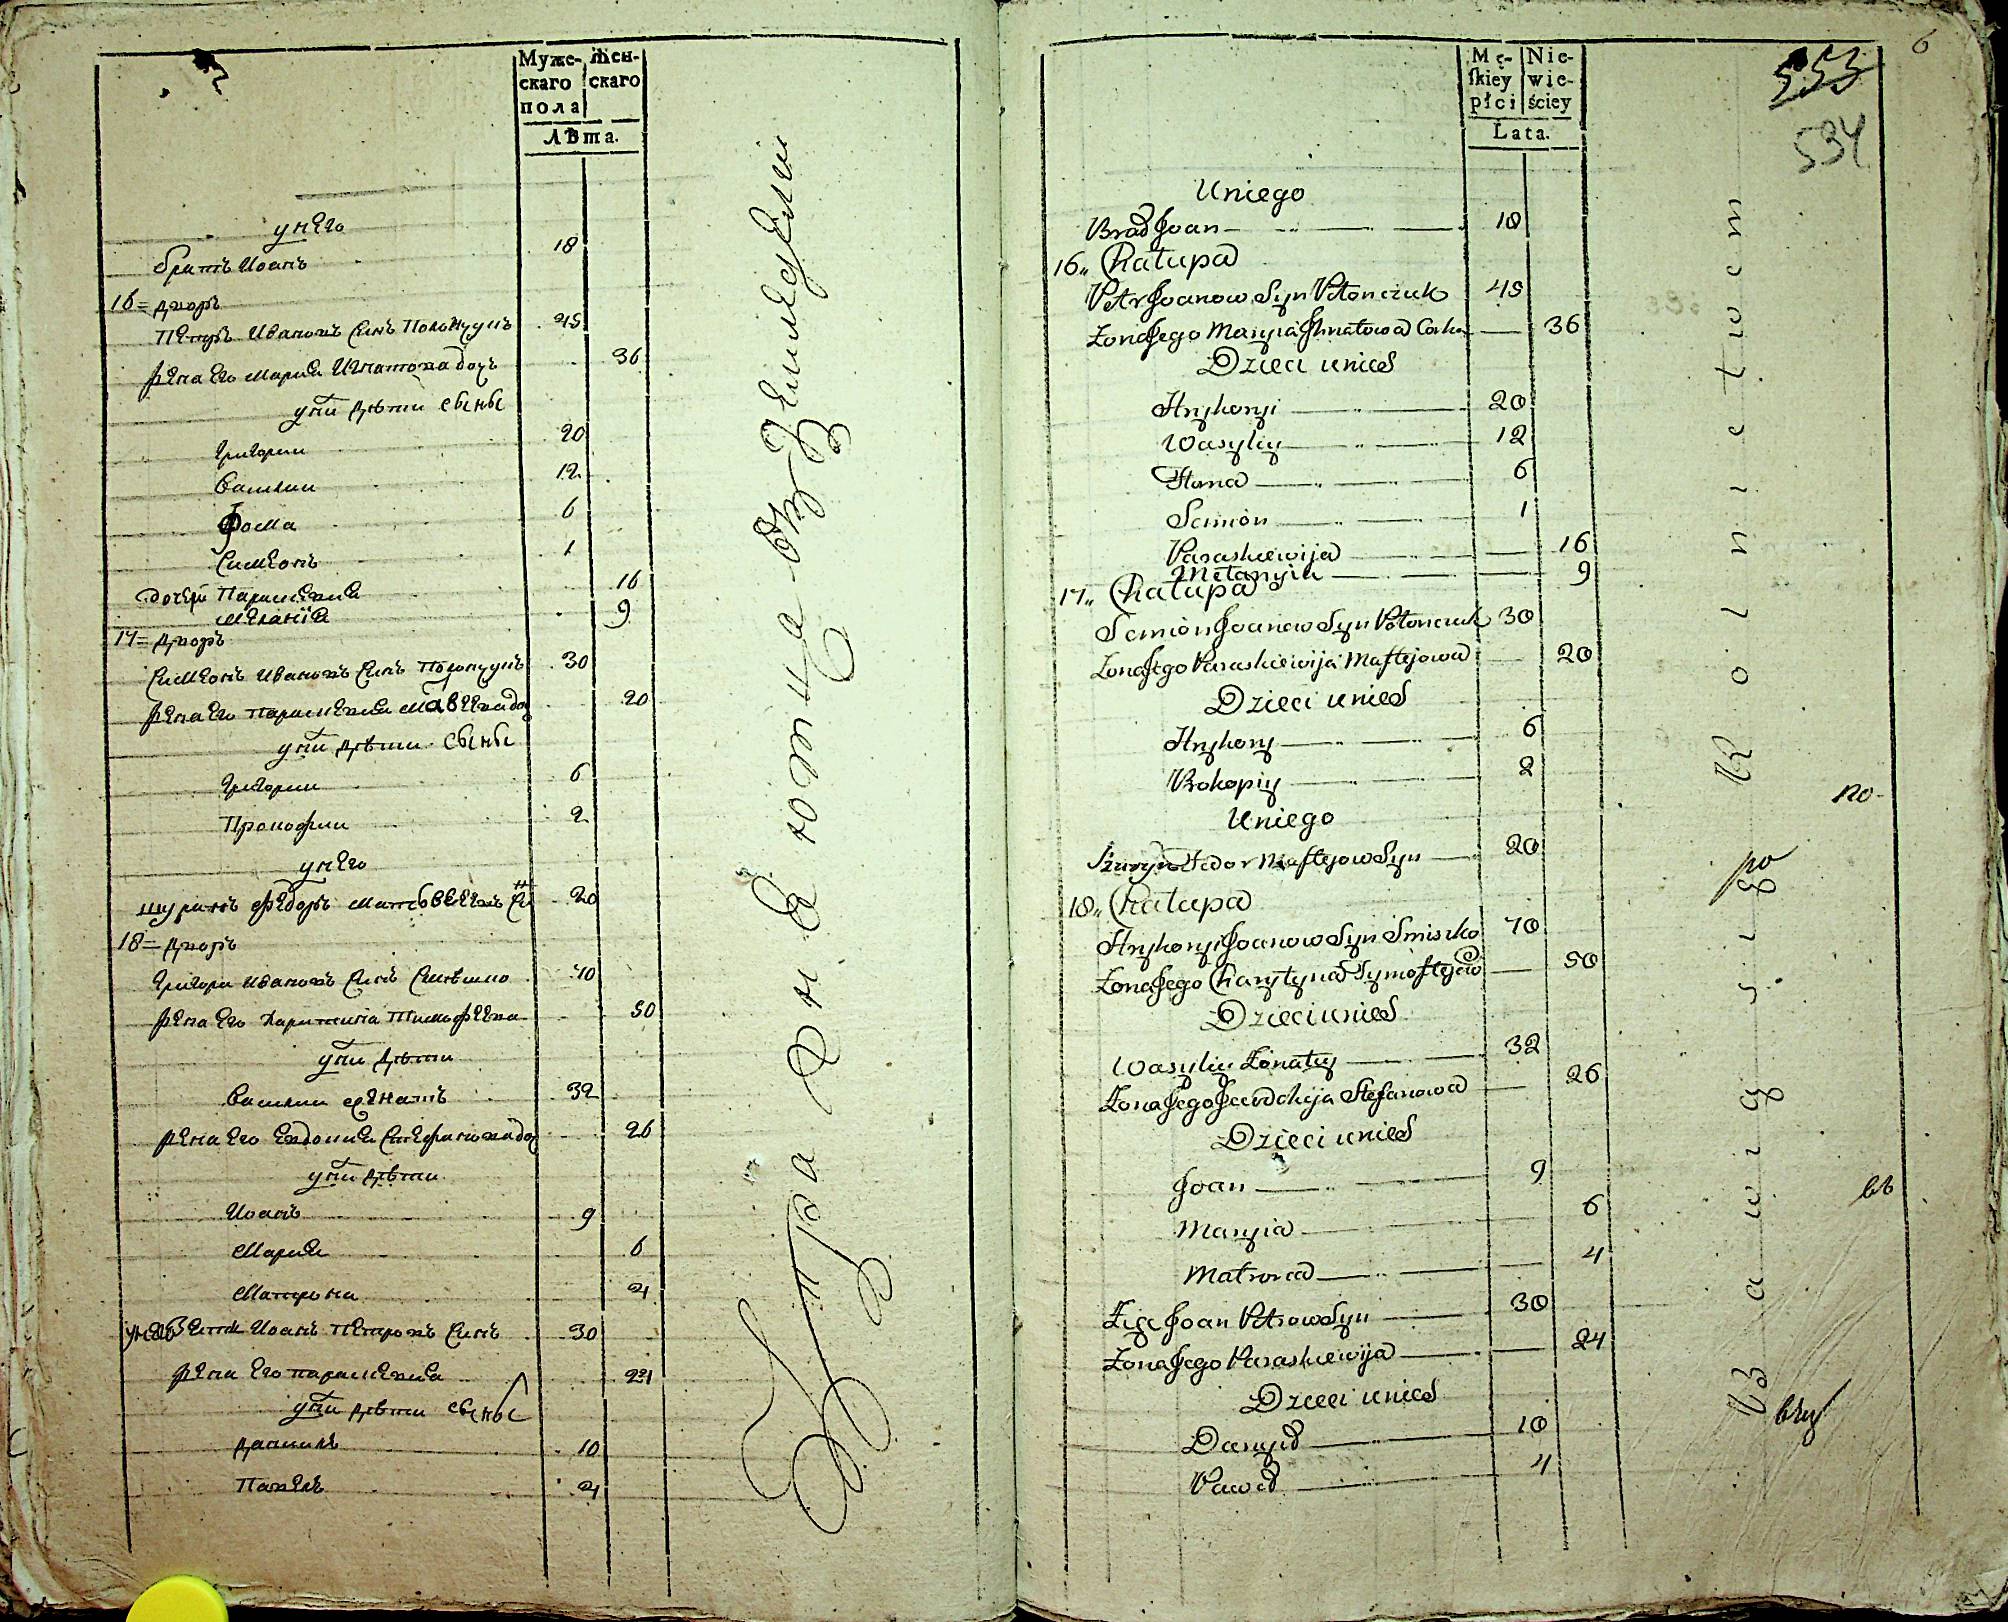 Муже- Жен-
скаго скаго
пола
Лѣта.
у него
братъ Иоанъ 18
16 = дворъ
Петръ Ивановъ синъ Полончукъ 45
жена его Мария Игнатова доч 36
у ни дѣти сыны
Григории 20
Василии 12
Фома 6
Симеонъ 1
дочери Параскевиа 16
Меланїа 9
17 = дворъ
Симеонъ Ивановъ синъ Полончукъ 30
жена его Параскевиа Мавеева до 20
у ни дѣти сыны
Григории 6
Прокофии 2
у него
шуринъ Федоръ Матьвеевъ си 20
18 = дворъ
Григори Ивановъ синъ Смѣшко 70
жена его Харитина Тимофеева 50
у ни дѣти
Василии женатъ 32
жена его Евдокиа Стефанова доч 26
у ни дѣти
Иоанъ 9
Мариа 6
Матрона 4
у него зять Иоанъ Петровъ синъ 30
жена его Параскевиа 24
у ни дѣти сыны
Данилъ 10
Павелъ 4
Упражняютца въ Земледелии
6
553
534
Mę- Nie-
skiey wie-
płci ściey
Lata.
U niego
Brad Joan 18
16,, Chałupa
Petr Joanow Syn Połonczuk 45
Zona Jego Maryia Jhnatowa Corka 36
Dzieci unich
Hryhoryi 20
Wasyliy 12
Homa 6
Semion 1
Paraskiewija 16
Mełanyia 9
17,, Chałupa
Semion Joanow Syn Połonczuk 30
Zona Jego Paraskiewija Maftejowa 20
Dzieci unich
Hryhory 6
Prokopiy 2
U niego
Szuryn Fedor Maftejow Syn 20
18,, Chałupa
Hryhoryi Joanow Syn Smiszko 70
Zona Jego Charytyna Tymoftejow 50
Dzieci unich
Wasyliy Żonaty 32
Zona Jego Jewdokija Stefanowa 26
Dzieci unich
Joan 9
Maryia 6
Matrona 4
Zięć Joan Petrow Syn 30
Zona Jego Paraskiewija 24
Dzieci unich
Danyło 10
Paweł 4
Bawią się Rolnictwem
по